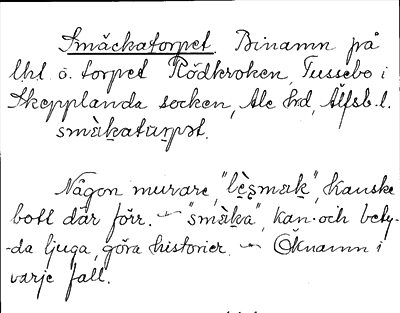 Smäckatorpet. Binamn på
lht. o. torpet Rödkroken, Tussebo i
Skepplanda socken, Ale hd, Älfsb. l.
smàk̠atɑrpət.
Någon murare, "lè̠smɑk̠", kanske
bott där förr. — "smàk̠a", kan och bety-
-da ljuga, göra historier. — Öknamn i
varje fall.